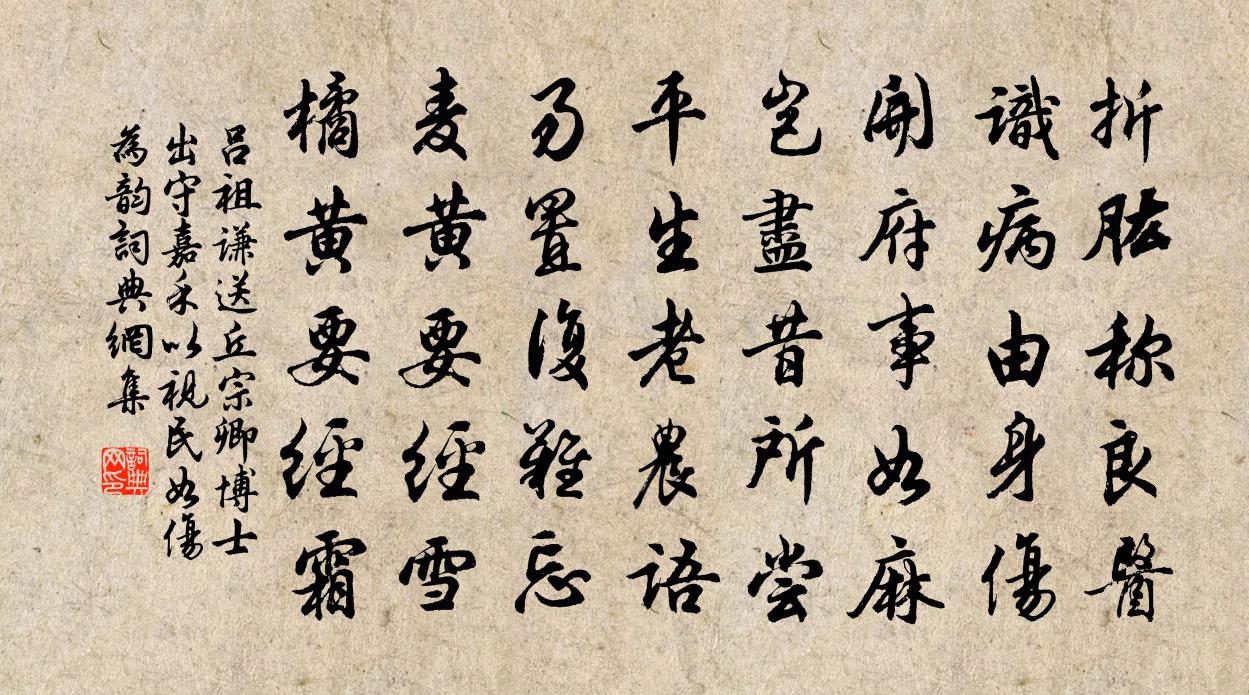 折肱称良醫
識病由身傷
開府事如麻
豈盡昔所尝
平生老農語
易置復難忘
麦黄要經雪
橘黄要經霜
吕祖谦送丘宗卿博士
出守嘉禾以視民如傷
為韵詞典網集
詞典網印